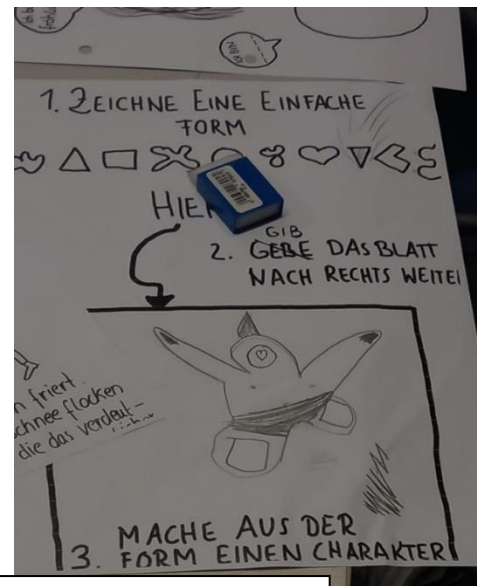 1. ZEICHNE EINE EINFACHE
FORM
HIER
2. GEBE GIB DAS BLATT
NACH RECHTS WEITER
n friert.
chneeflocken
die das verdeut-
3. MACHE AUS DER
FORM EINEN CHARAKTER